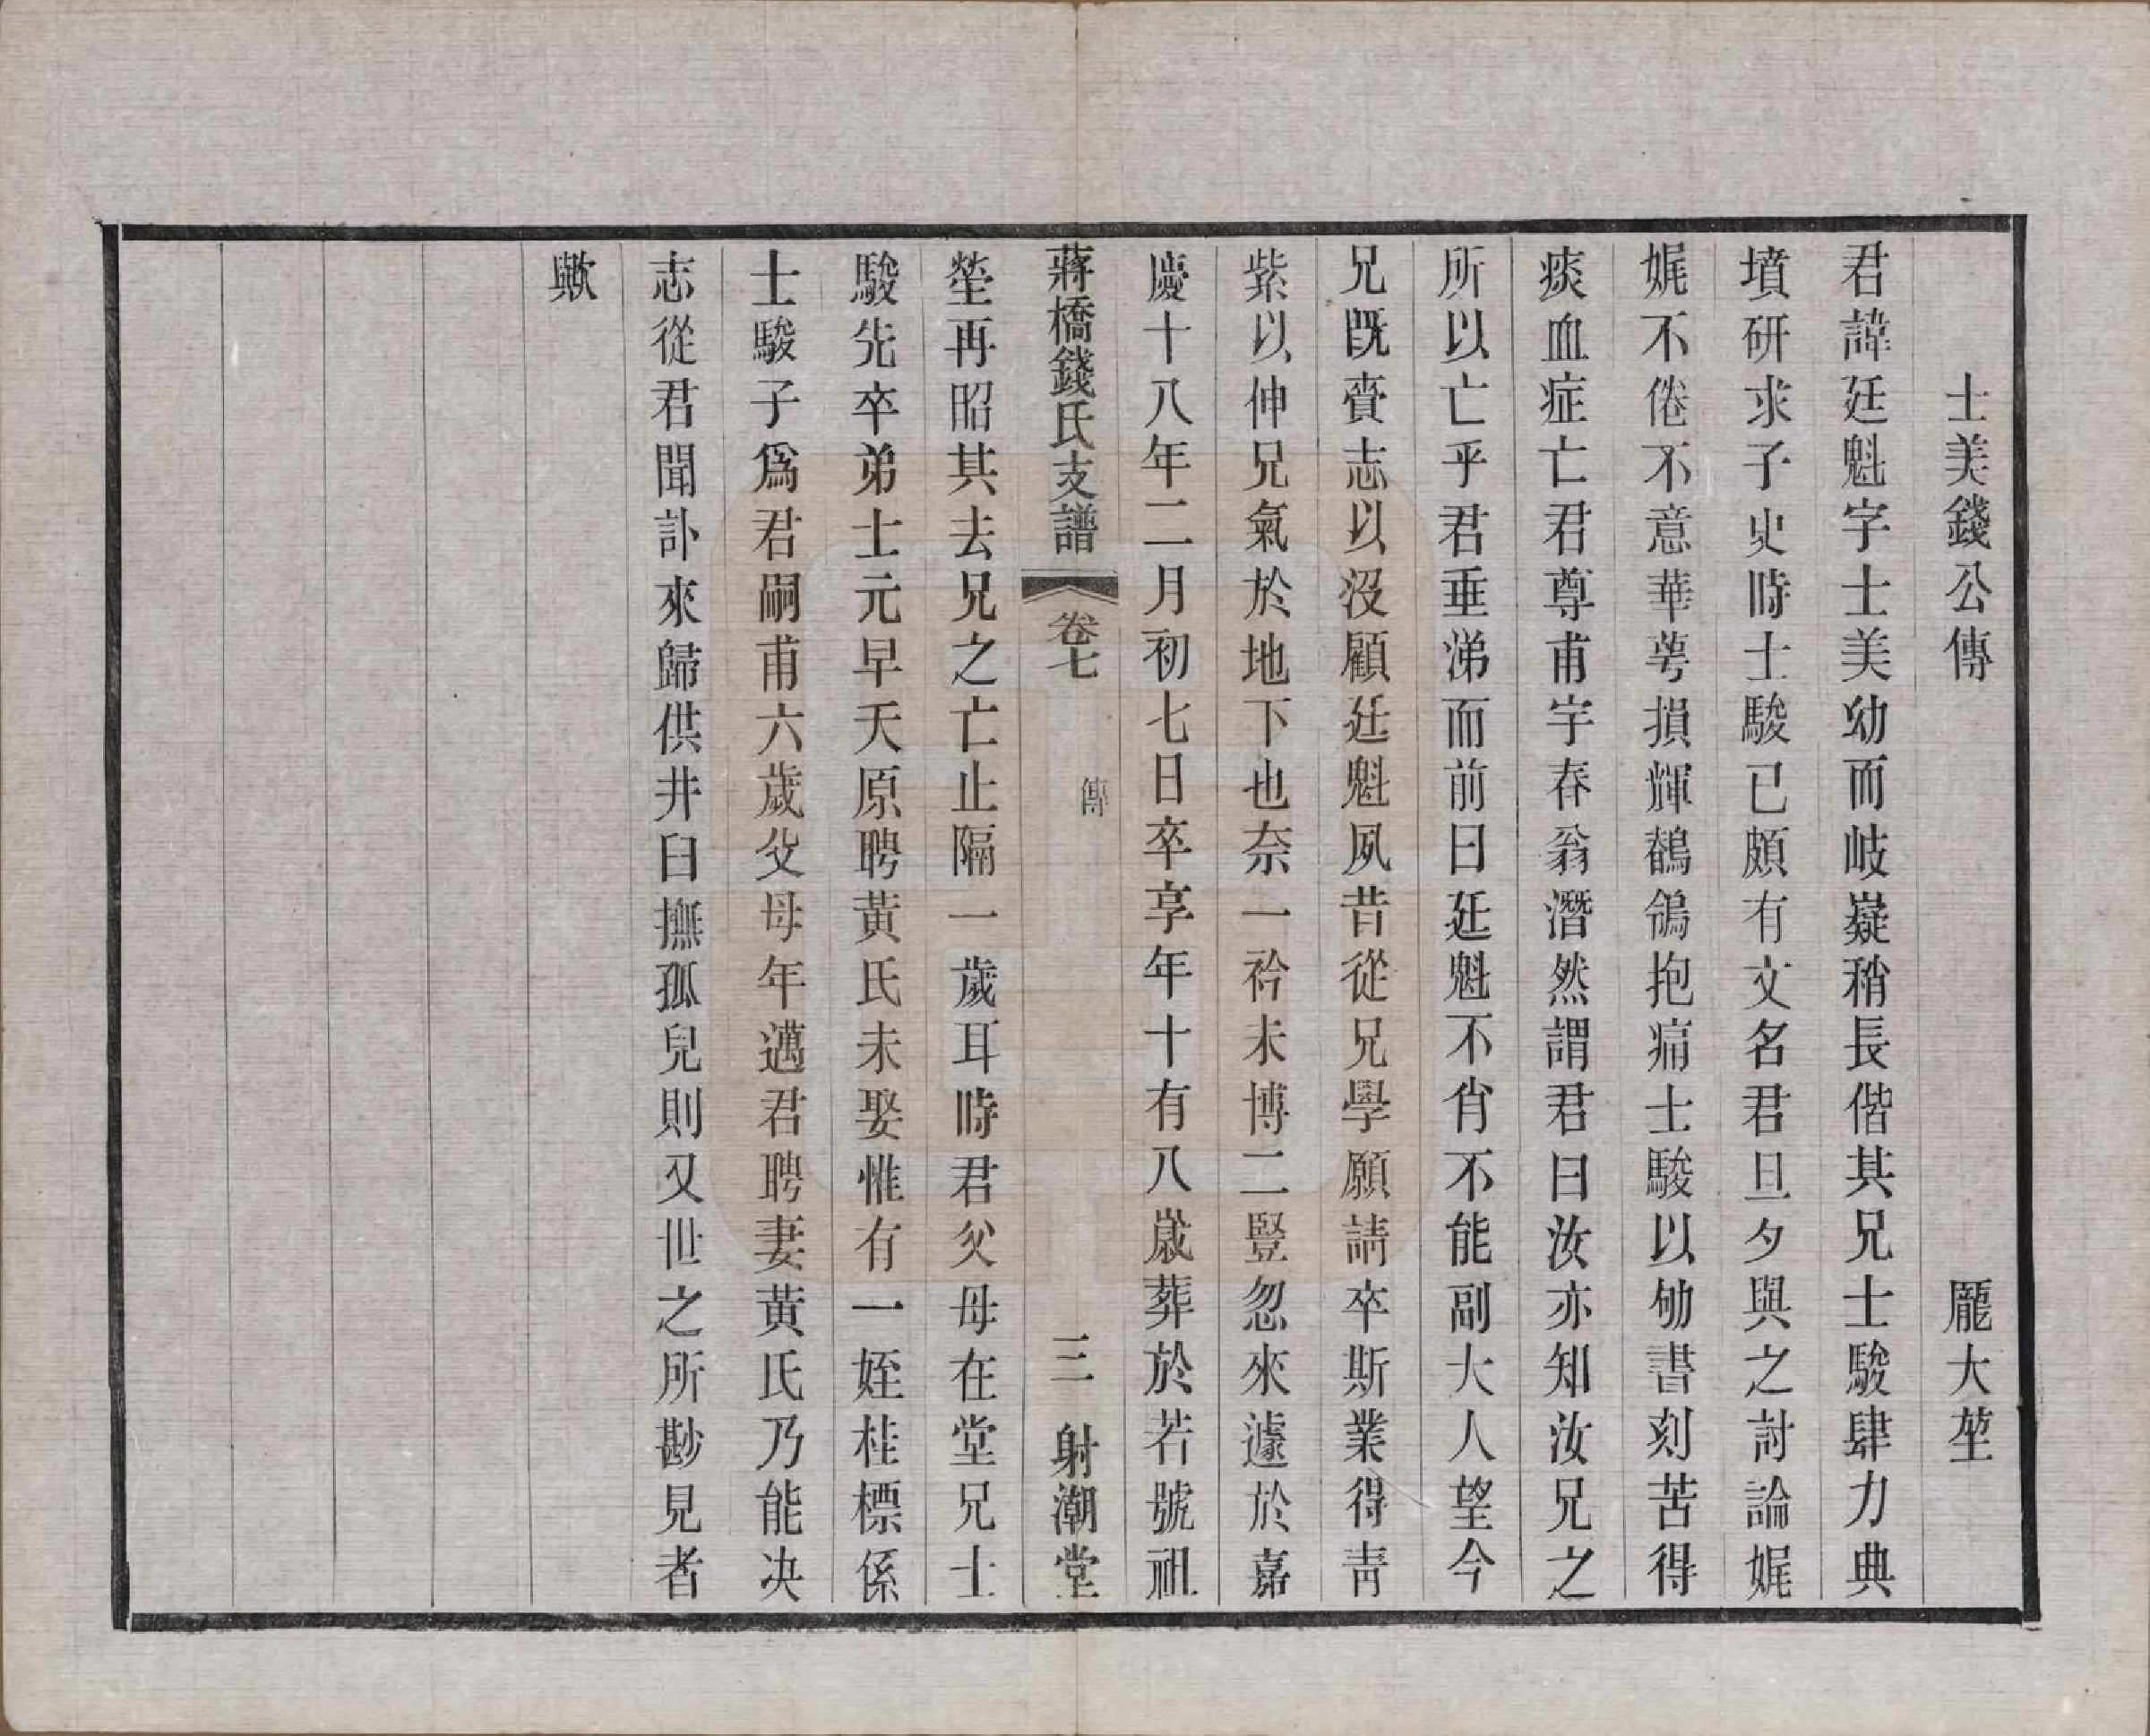 士美錢公傳 龎大堃
君諱廷魁字士美幼而岐嶷稍長偕其兄士駿肆力典
墳研求子史時士駿已頗有文名君旦夕與之討論娓
娓不倦不意華萼損輝鶺鴒抱痛士駿以劬書刻苦得
痰血症亡君尊甫宇春翁潛然謂君曰汝亦知汝兄之
所以亡乎君垂涕而前曰廷魁不肖不能副大人望今
兄既賫志以沒顧廷魁夙昔從兄學願請卒斯業得青
紫以伸兄氣於地下也奈一衿未博二豎忽來遽於嘉
慶十八年二月初七日卒享年十有八歲葬於若號祖
蔣橋錢氏支譜 卷七 傳 三 射潮堂
塋再昭其去兄之亡止隔一歲耳時君父母在堂兄士
駿先卒弟士元早夭原聘黃氏未娶惟有一姪桂標係
士駿子爲君嗣甫六歲父母年邁君聘妻黃氏乃能决
志從君聞訃來歸供井臼撫孤兒則又世之所尠見者
歟